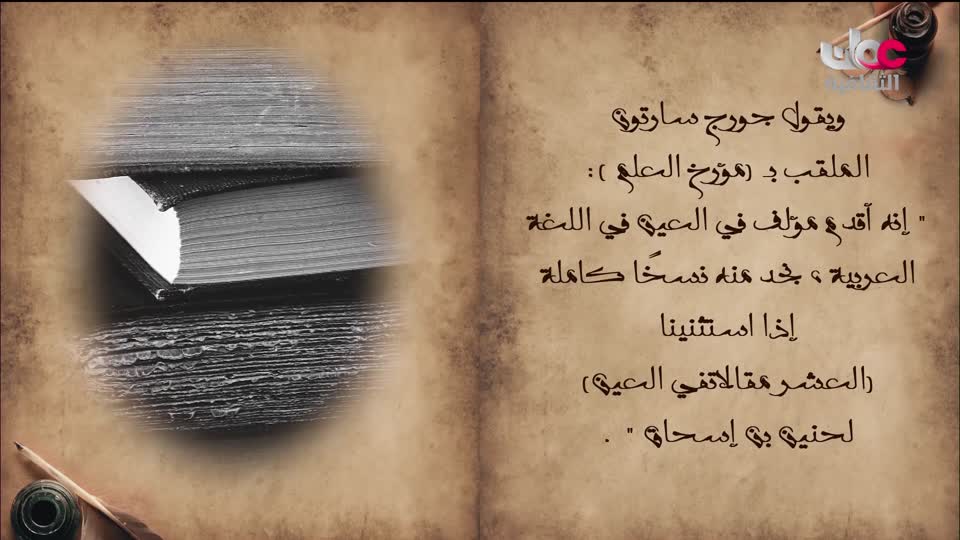 عمان
الثقافية
ويقول جورج سارتون
الملقب بـ (مؤرخ العلم ):
" إنه أقدم مؤلف في العين في اللغة
العربية ، نجد منه نسخًا كاملة
إذا استثنينا
(العشر مقالاتفي العين)
لحنين بن إسحاق " .